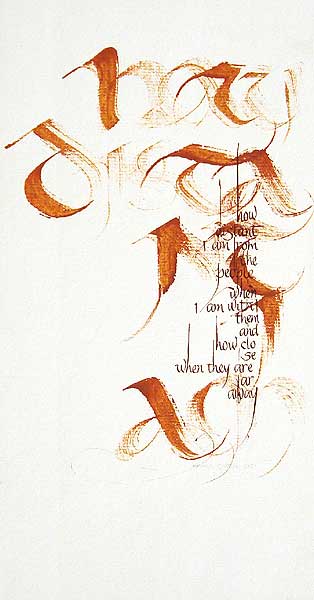 how
dista
nt
how
distant
I am from
the
people
when
I am with
them
and
how clo
se
when they are
far
away